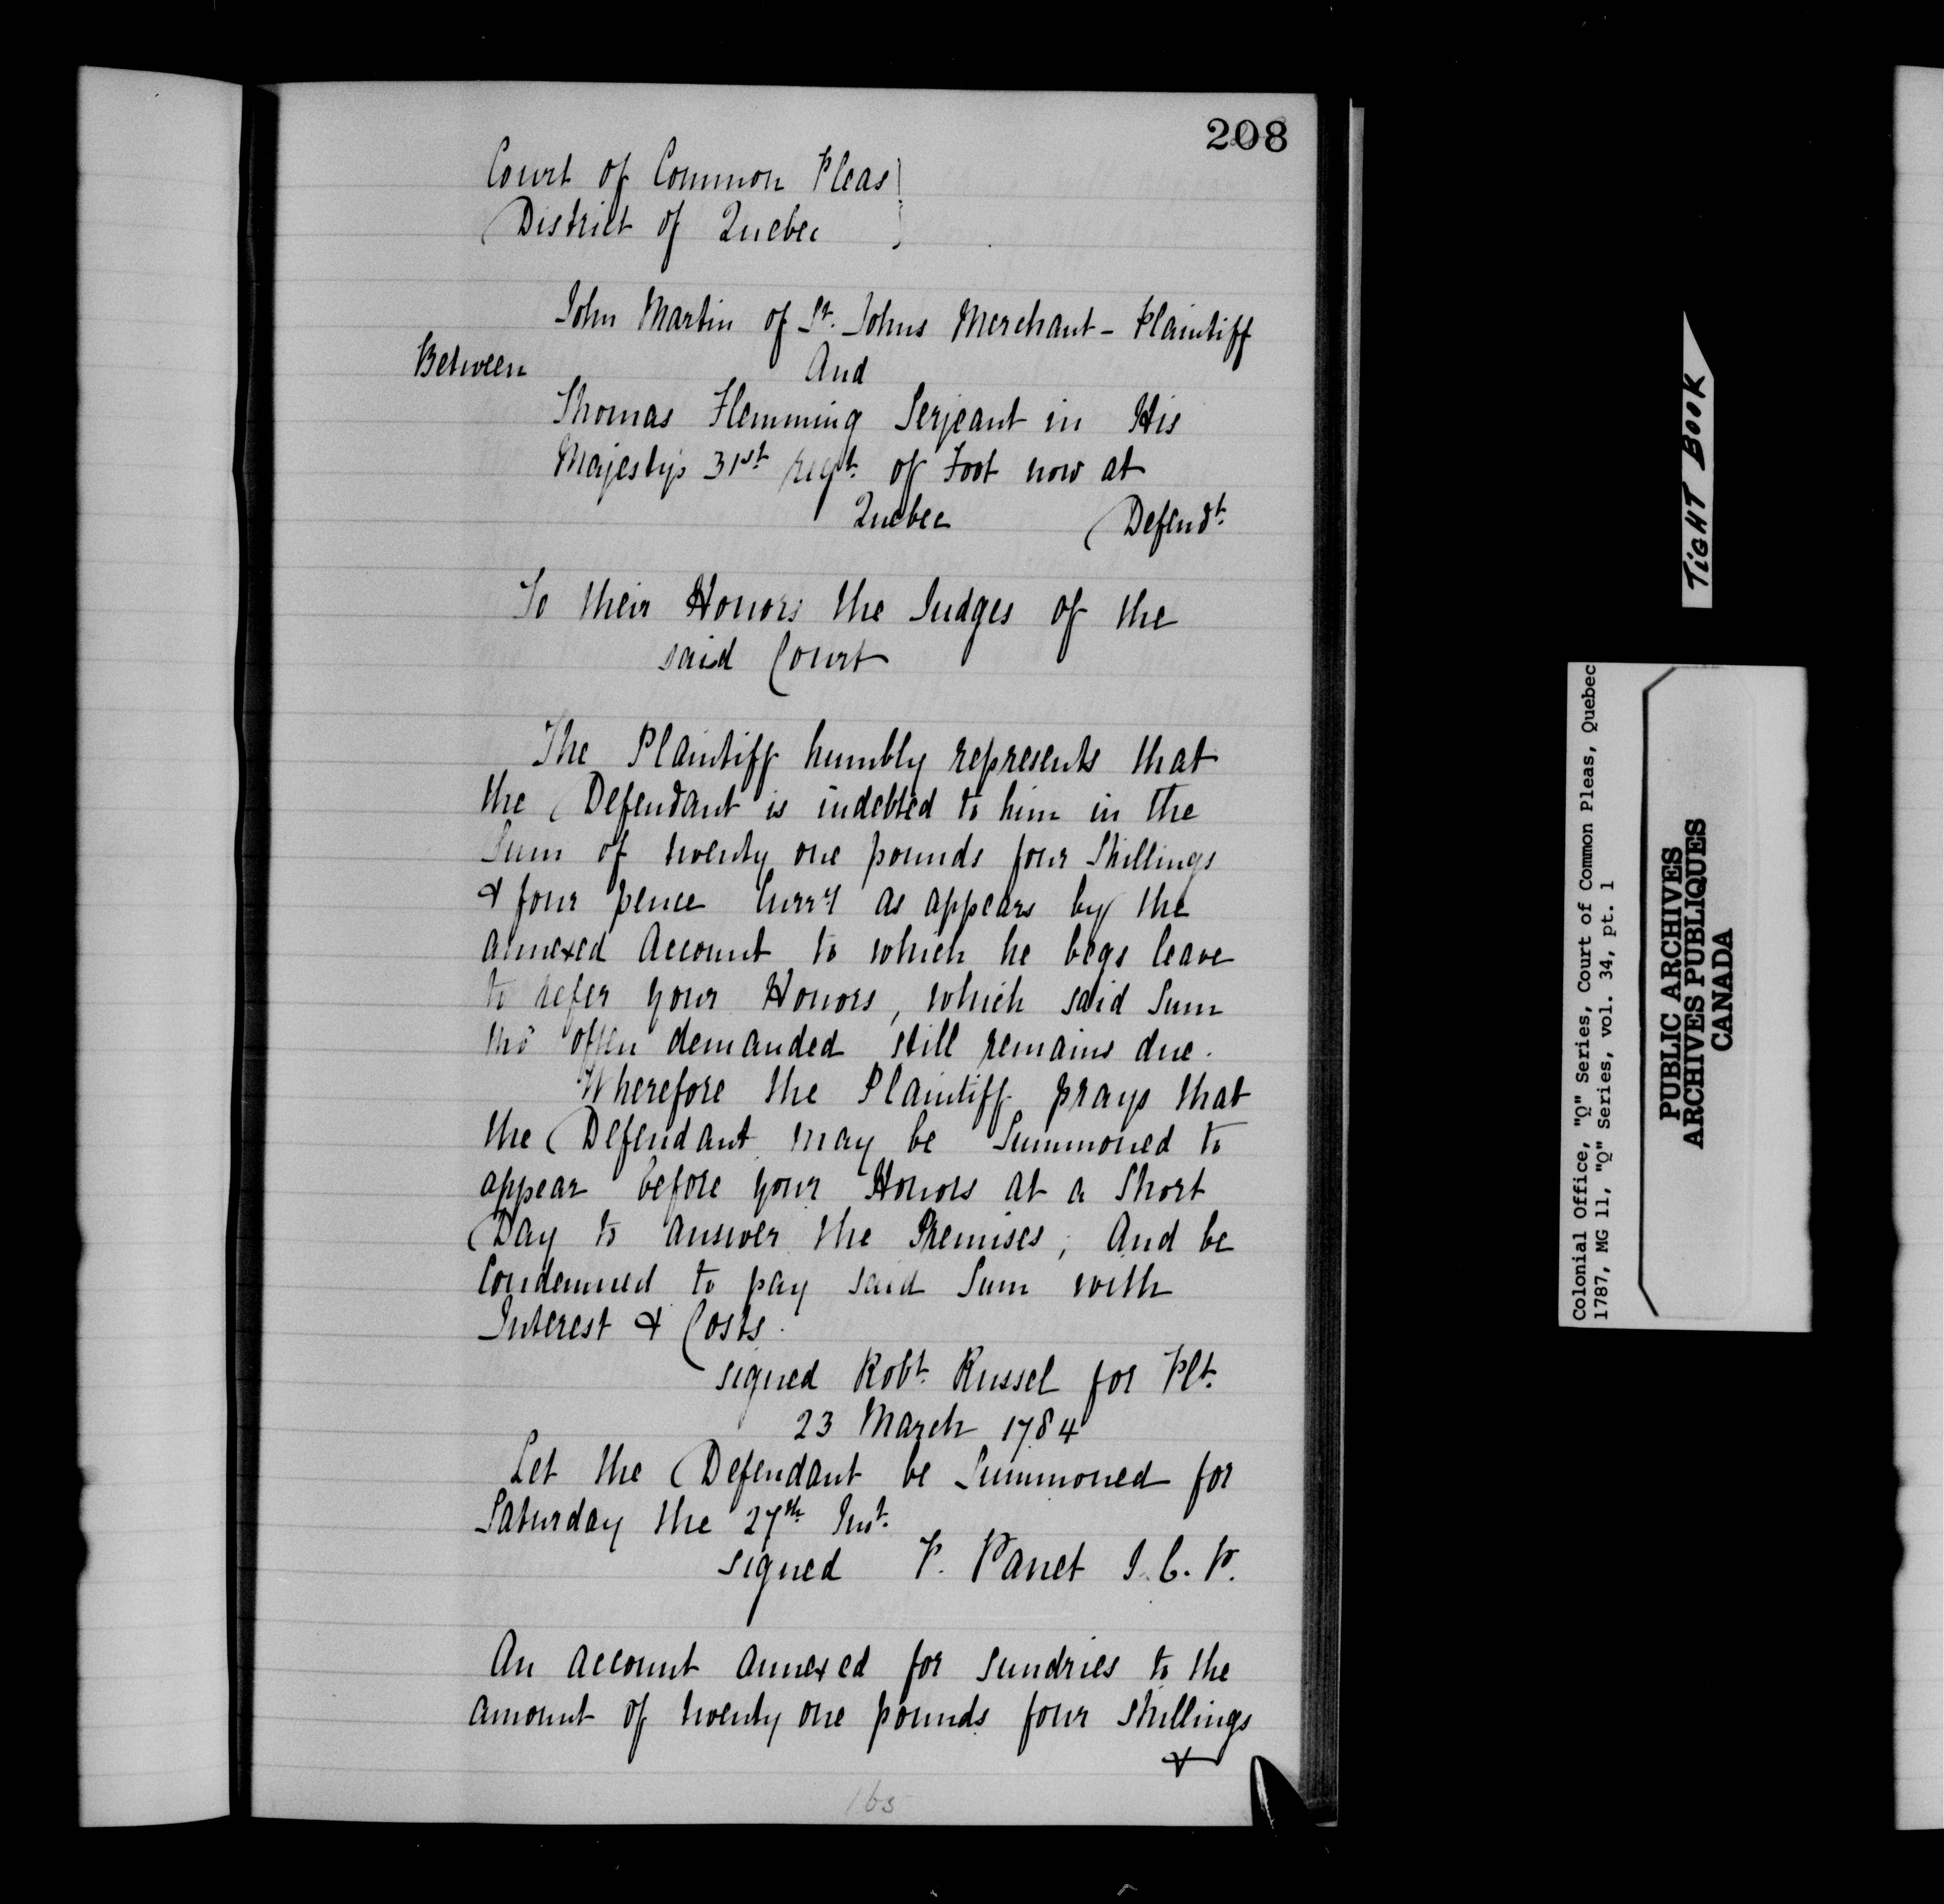 208
Court of Common Pleas
District of Quebec
John Martin of St. Johns Merchant - Plaintiff
Between
And
Thomas Flemming Serjeant in His
Majesty's 31st regt. of Foot now at
Quebec Defendt.
To their Honors the Judges of the
said Court
The Plaintiff humbly represents that
the Defendant is indebted to him in the
Sum of twenty one pounds four Shillings
& four pence Curry as appears by the
annexed Account to which he begs leave
to refer your Honors, which said Sum
tho' often demanded still remains due.
Wherefore the Plaintiff prays that
the Defendant may be Summoned to
appear before your Honors at a Short
Day to answer the Premises, And be
Condemned to pay said Sum with
Interest & Costs.
signed Robt. Russel for Plt.
23 March 1784
Let the Defendant be Summoned for
Saturday the 27th Inst.
signed P. Panet J.C.P.
An account annexed for sundries to the
amount of twenty one pounds four shillings
&
165
TIGHT BOOK
Colonial Office, "Q" Series, Court of Common Pleas, Quebec
1787, MG 11, "Q" Series, vol. 34, pt. 1
PUBLIC ARCHIVES
ARCHIVES PUBLIQUES
CANADA